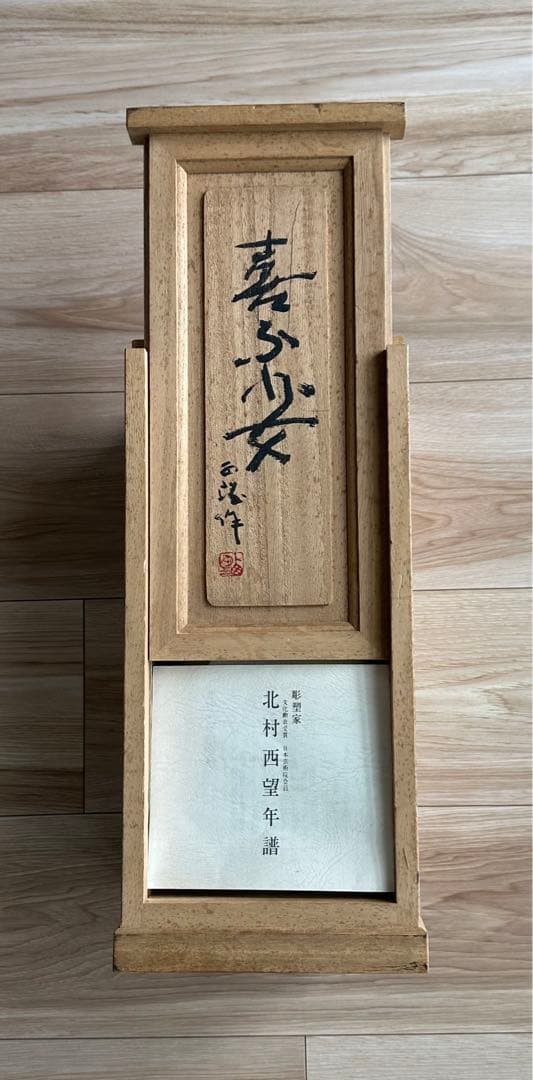 喜ぶ少女
西望作
彫塑家
文化勲章受賞 日本芸術院会員
北村西望年譜